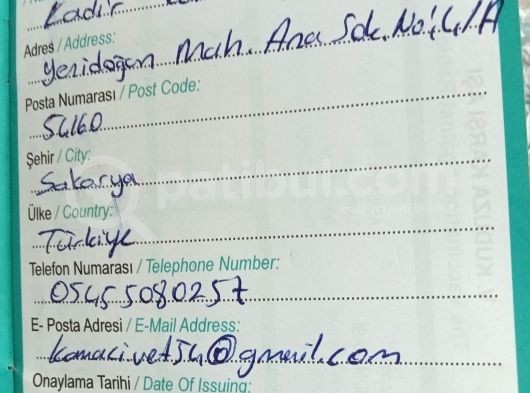 Kadir
Adres / Address:
Yenidoğan Mah. Ana Sok. No: 4/A
Posta Numarası / Post Code:
54160
Şehir / City:
Sakarya
Ülke / Country:
Türkiye
Telefon Numarası / Telephone Number:
0545 5080257
E- Posta Adresi / E-Mail Address:
kamacivet54@gmail.com
Onaylama Tarihi / Date Of Issuing: